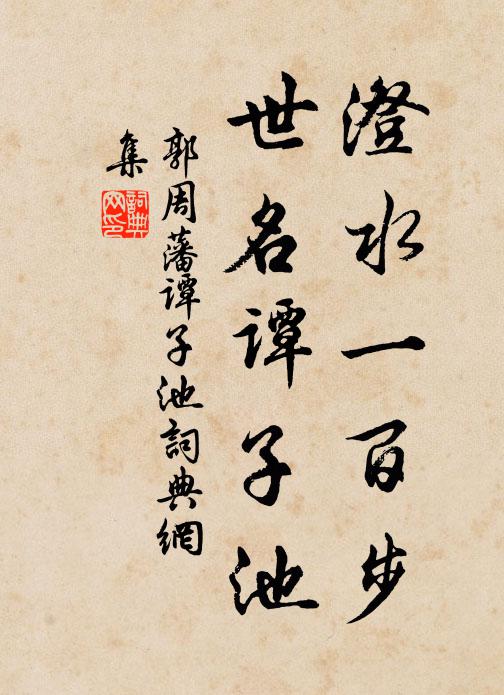 澄水一百步
世名谭子池
郭周藩谭子池詞典網
集
詞典
网印